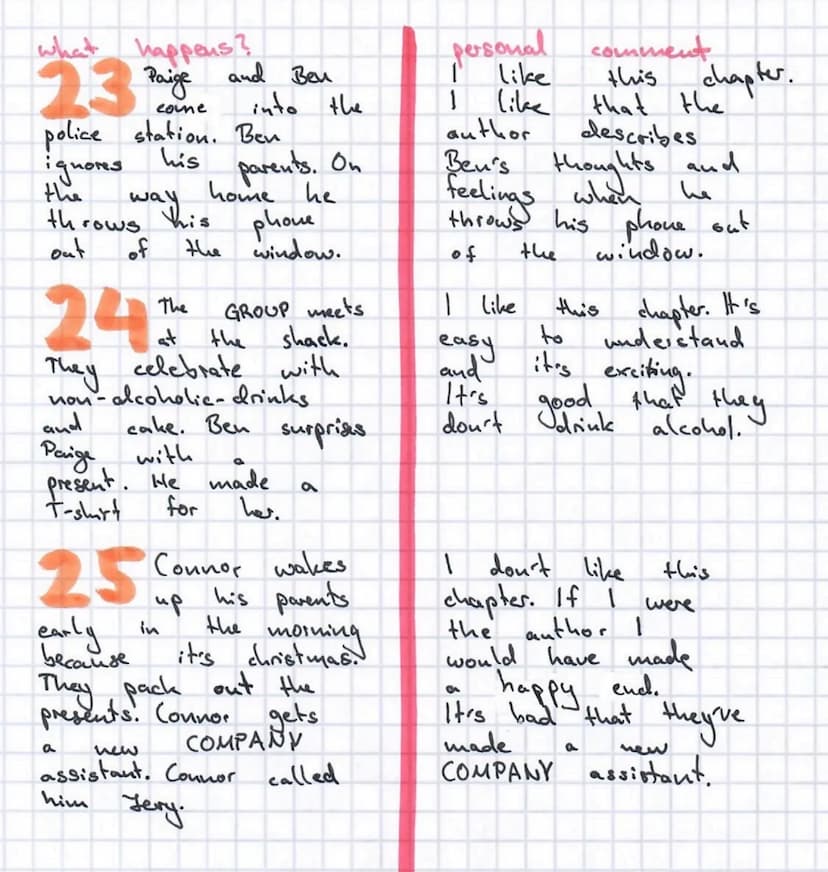 what happens?
23 Paige and Ben
come into the
police station. Ben
ignores his parents. On
the way home he
throws this phone
out of the window.
24 The GROUP meets
at the shack.
They celebrate with
non-alcoholic-drinks
and cake. Ben surprises
Paige with a
present. He made a
T-shirt for her.
25 Connor wakes
up his parents
early in the morning
because it's christmas.
They pack out the
presents. Connor gets
a new COMPANY
assistant. Connor called
him Jery.
personal comment
I like this chapter.
I like that the
author describes
Ben's thoughts and
feelings when he
throws his phone out
of the window.
I like this chapter. It's
easy to understand
and it's exciting.
It's good that they
don't drink alcohol.
I don't like this
chapter. If I were
the author I
would have made
a happy end.
It's bad that they've
made a new
COMPANY assistant.